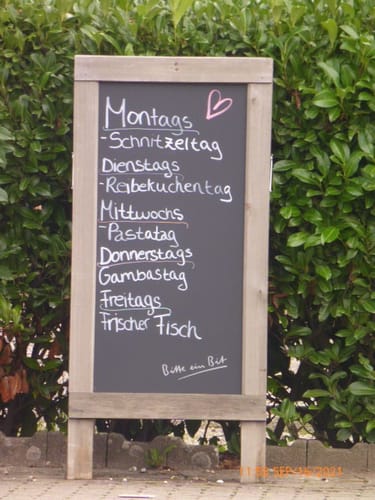 Montags
-Schnitzeltag
Dienstags
-Reibekuchentag
Mittwochs
-Pastatag
Donnerstags
Gambastag
Freitags
Frischer Fisch
Bitte ein Bit
SEP/15/2021